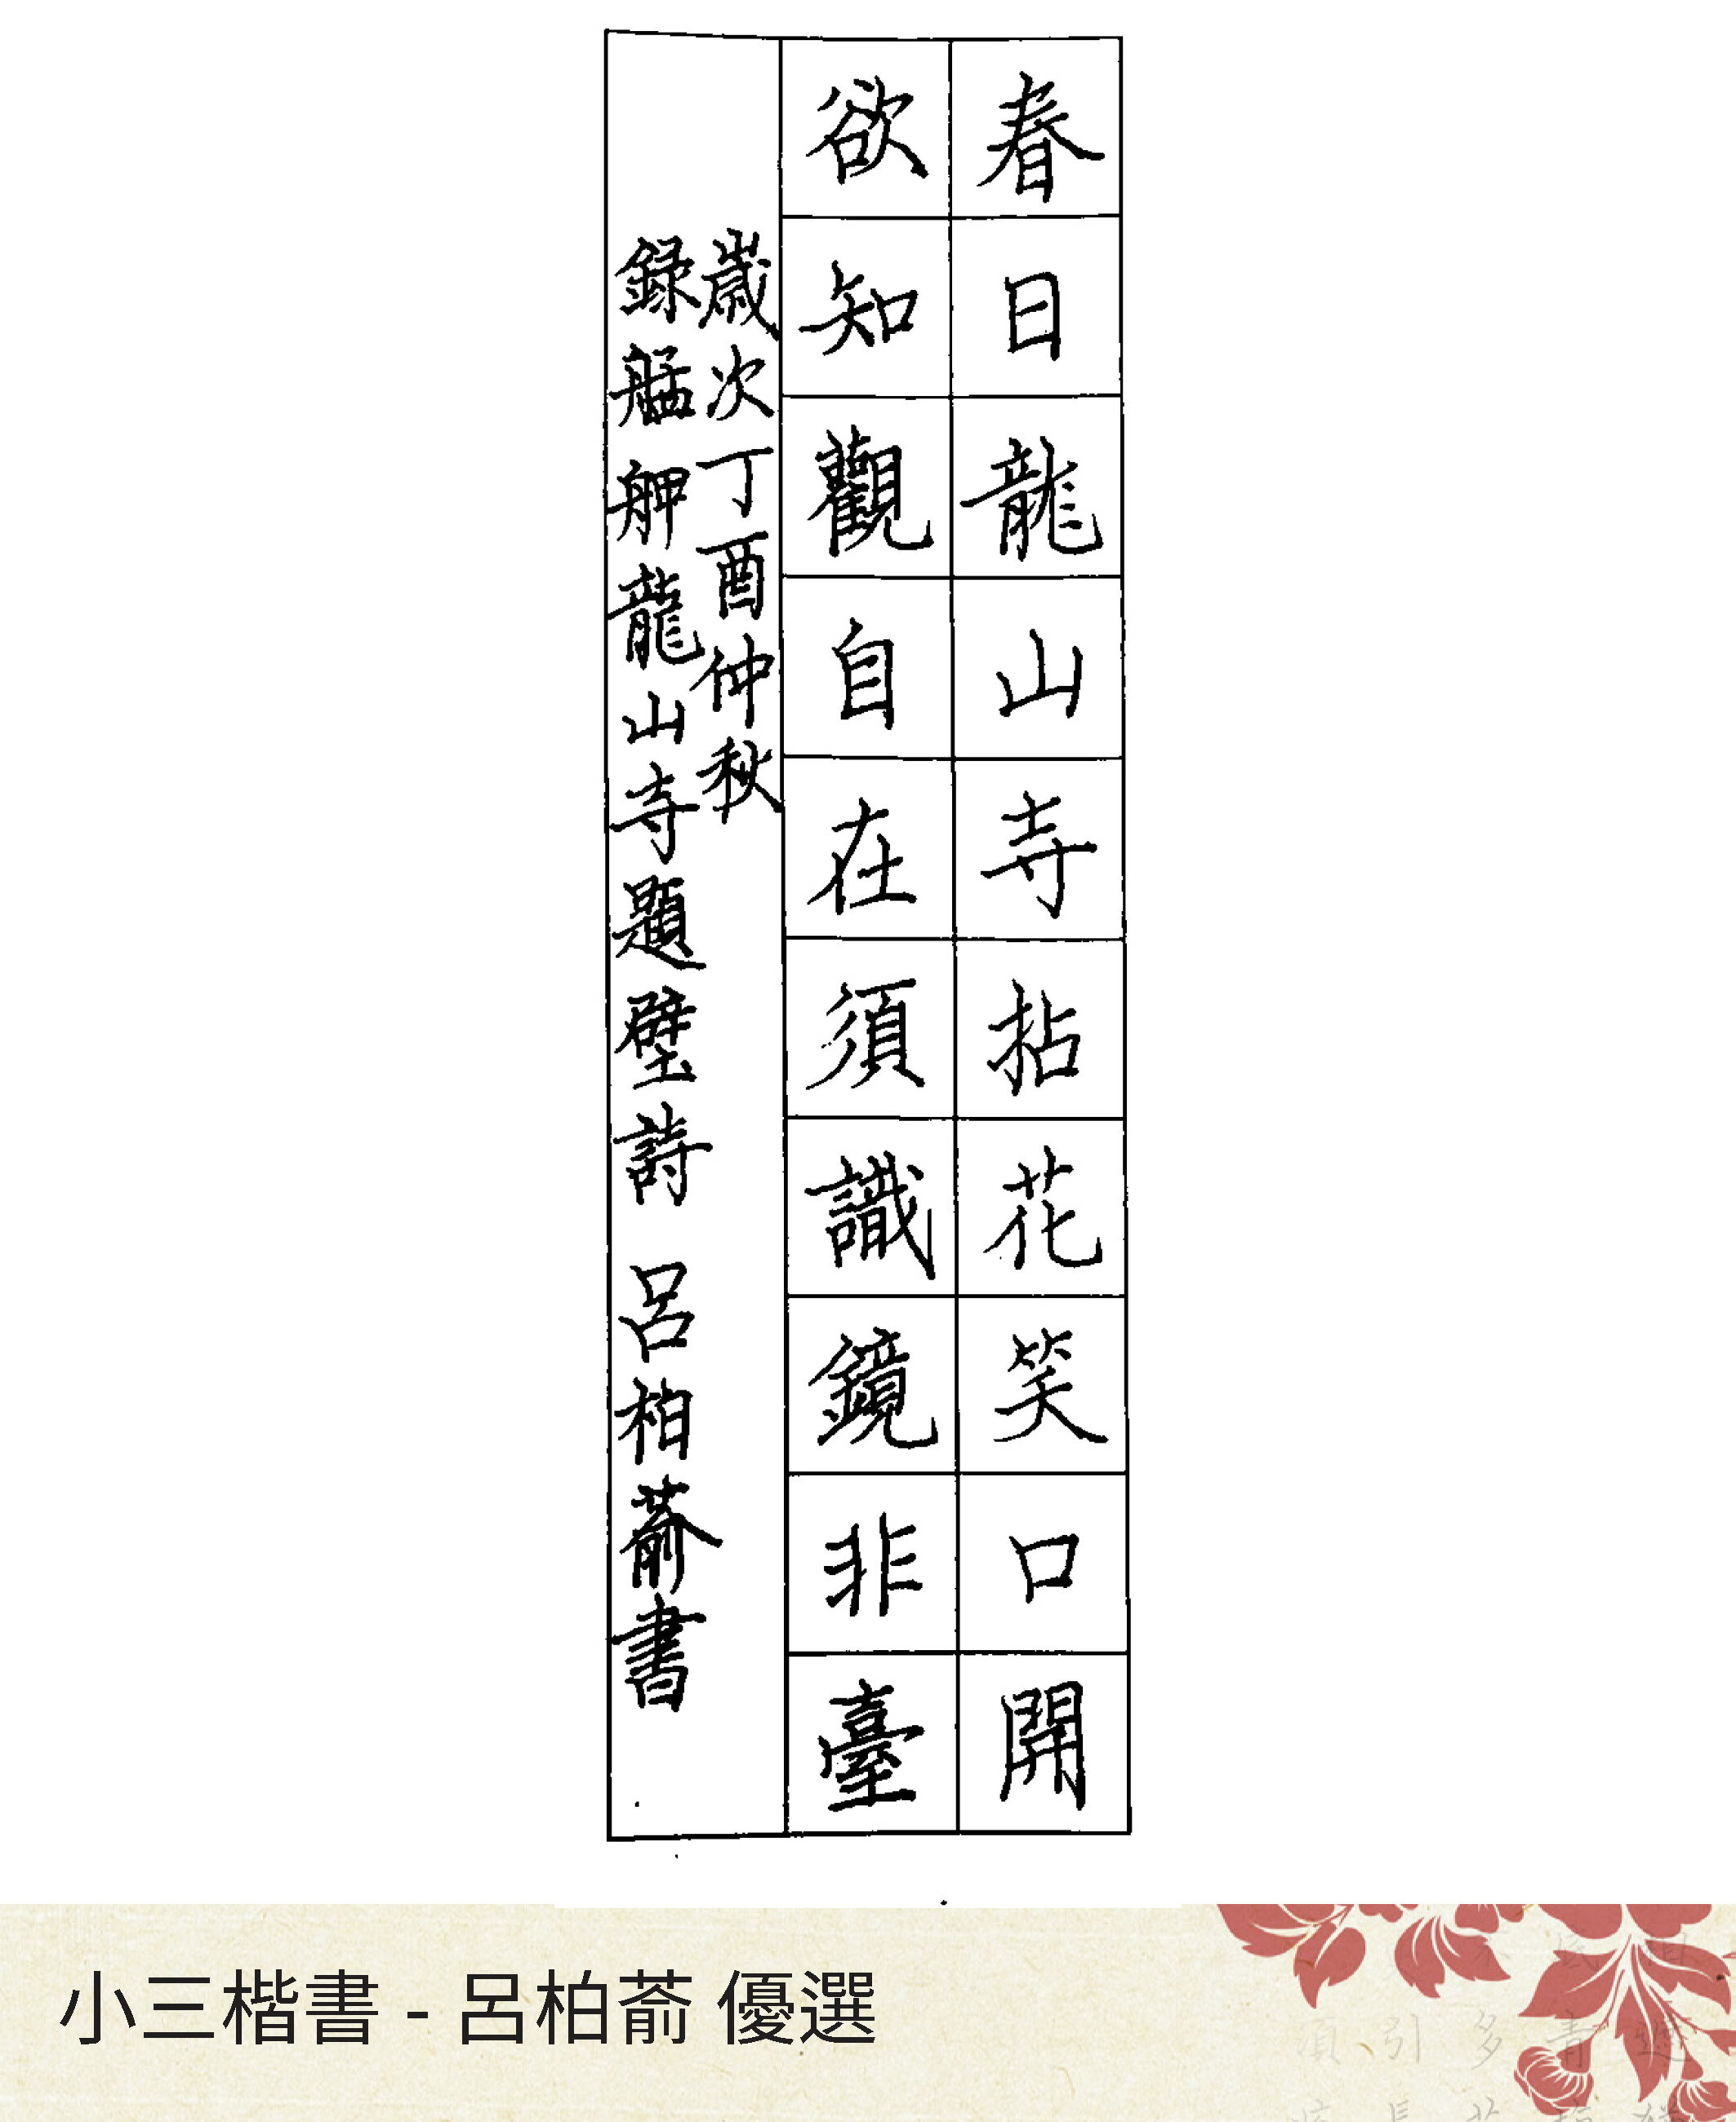 春日龍山寺拈花笑口開
欲知觀自在須識鏡非臺
歲次丁酉仲秋
録艋舺龍山寺題壁詩 呂柏萮書
小三楷書 - 呂柏萮 優選